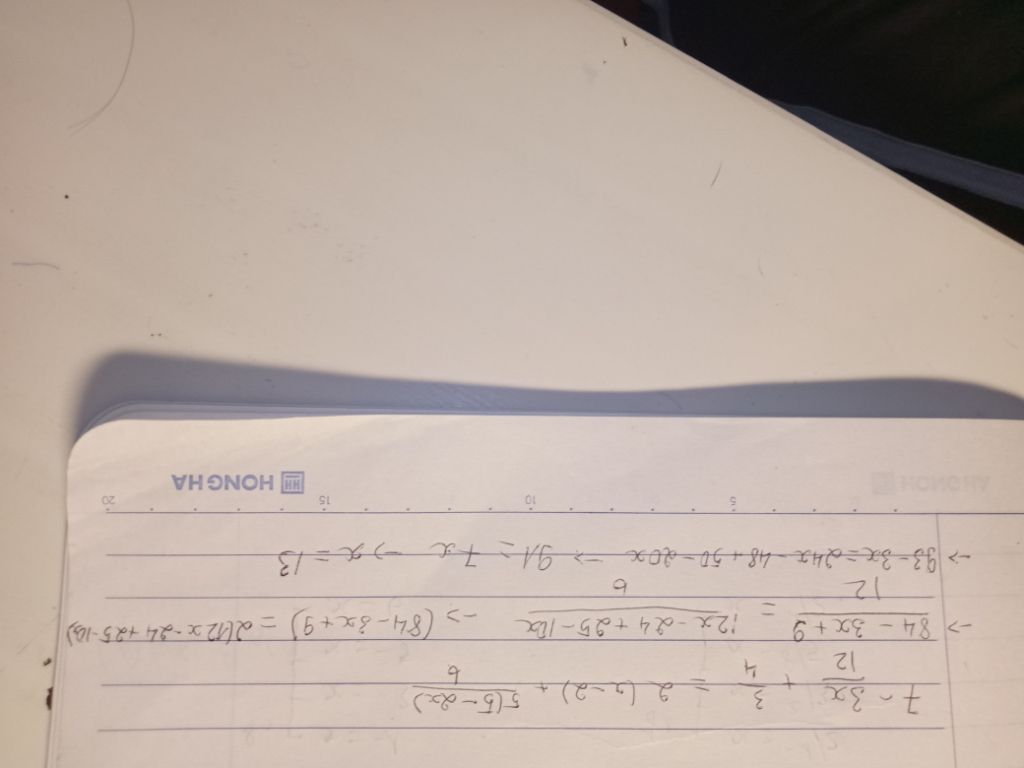 7 - 3x/12 + 3/4 = 2(x-2) + 5(5-2x)/6
-> 84 - 3x + 9/12 = 12x - 24 + 25 - 10x/6 -> (84 - 3x + 9) = 2(12x - 24 + 25 - 10x)
-> 93 - 3x = 24x - 48 + 50 - 20x -> 91 = 7x -> x = 13
5 10 15 20
HONG HA